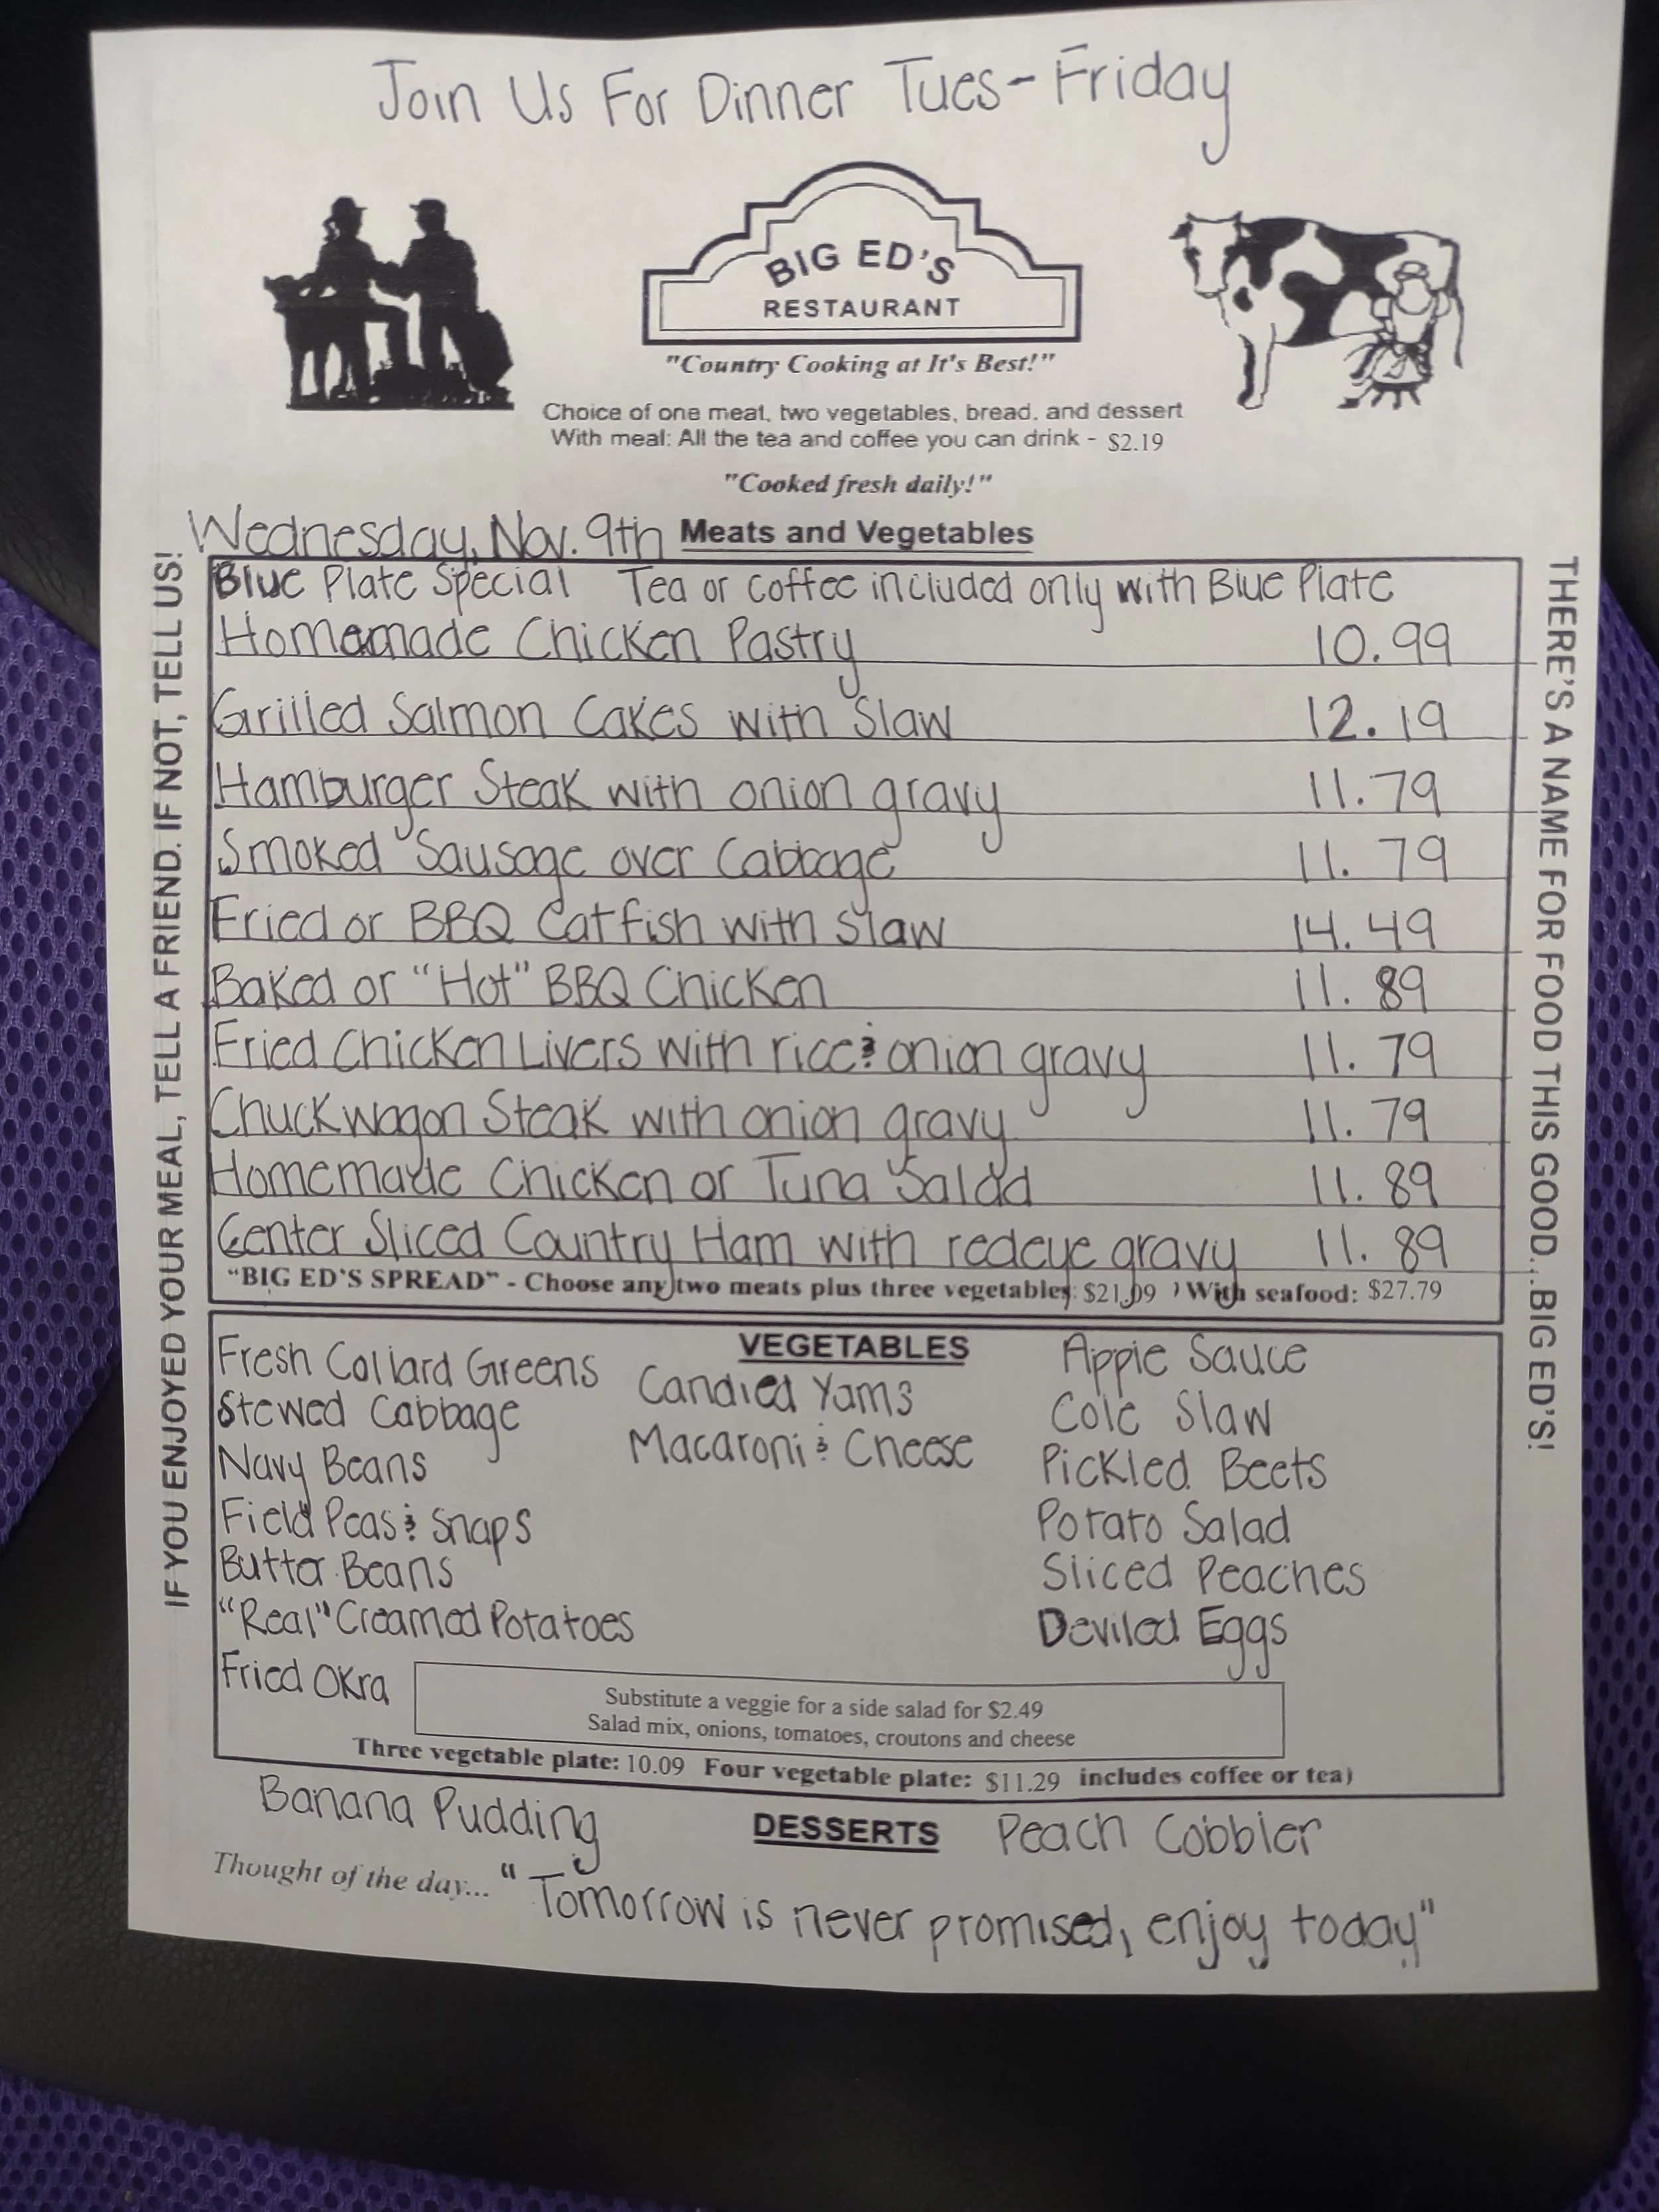 Join Us For Dinner Tues-Friday
BIG ED'S
RESTAURANT
"Country Cooking at It's Best!"
Choice of one meat, two vegetables, bread, and dessert
With meal: All the tea and coffee you can drink - $2.19
"Cooked fresh daily!"
Wednesday, Nov. 9th Meats and Vegetables
IF YOU ENJOYED YOUR MEAL, TELL A FRIEND. IF NOT, TELL US!
Blue Plate Special Tea or coffee included only with Blue Plate
Homemade Chicken Pastry 10.99
Grilled Salmon Cakes with Slaw 12.19
Hamburger Steak with onion gravy 11.79
Smoked Sausage over Cabbage 11.79
Fried or BBQ Catfish with Slaw 14.49
Baked or "Hot" BBQ Chicken 11.89
Fried Chicken Livers with rice & onion gravy 11.79
Chuckwagon Steak with onion gravy 11.79
Homemade Chicken or Tuna Salad 11.89
Center Sliced Country Ham with redeye gravy 11.89
"BIG ED'S SPREAD" - Choose any two meats plus three vegetables: $21.09 ) With seafood: $27.79
THERE'S A NAME FOR FOOD THIS GOOD...BIG ED'S!
VEGETABLES
Fresh Collard Greens
Stewed Cabbage
Navy Beans
Field Peas & Snaps
Butter Beans
"Real" Creamed Potatoes
Fried Okra
Candied Yams
Macaroni & Cheese
Apple Sauce
Cole Slaw
Pickled Beets
Potato Salad
Sliced Peaches
Deviled Eggs
Substitute a veggie for a side salad for $2.49
Salad mix, onions, tomatoes, croutons and cheese
Three vegetable plate: 10.09 Four vegetable plate: $11.29 includes coffee or tea)
Banana Pudding DESSERTS Peach Cobbler
Thought of the day... "Tomorrow is never promised, enjoy today"